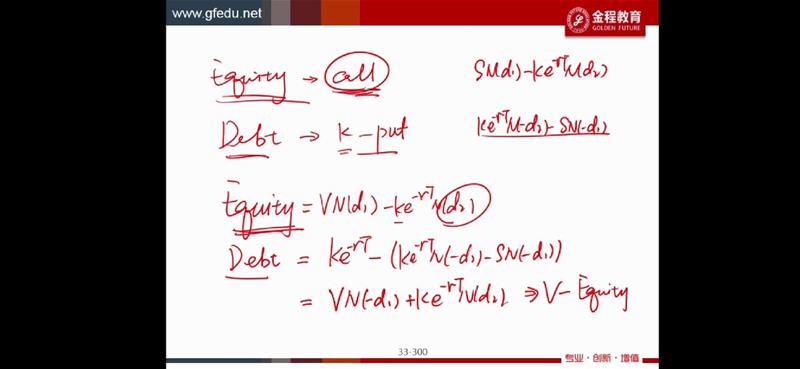 www.gfedu.net
金程教育
GOLDEN FUTURE
Equity → call
SN(d₁)-Ke^-rT N(d₂)
Debt → K - put
Ke^-rT N(-d₂) - SN(-d₁)
Equity = VN(d₁) - Ke^-rT N(d₂)
Debt = Ke^-rT - (Ke^-rT N(-d₂) - SN(-d₁))
= VN(-d₁) + Ke^-rT N(d₂) ⇒ V - Equity
33-300
专业·创新·增值